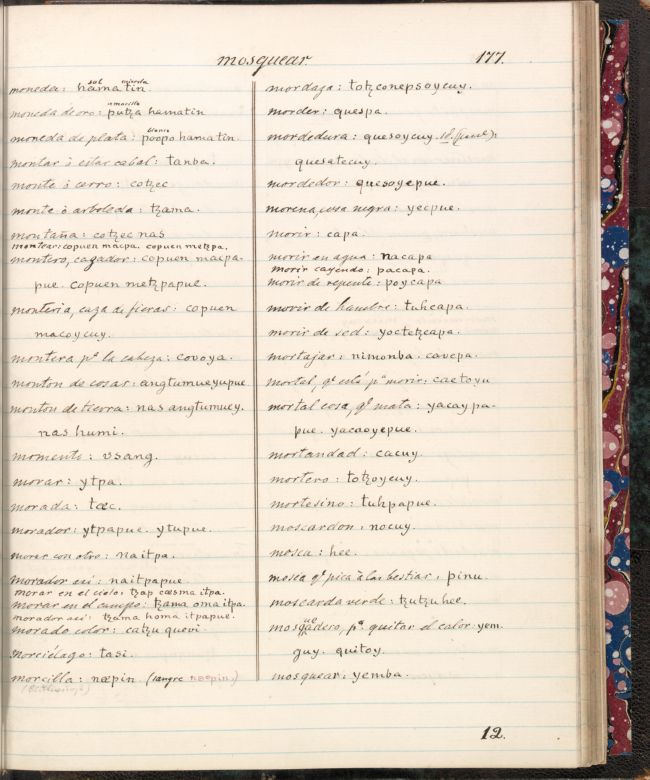 mosquear 177.
sal mierda
moneda: hamatin.
amarilla
moneda de oro: putza hamatin
blanco
moneda de plata: poopo hamatin.
montar ó estar cabal: tanba.
monte ó cerro: cotzec
monte ó arboleda: tzama.
montaña: cotzec nas
montear: copuen macpa. copuen metzpa.
montero, cazador: copuen macpa-
pue. copuen metzpapue.
monteria, caza de fieras: copuen
macoycuy.
montera pª la cabeza: covoya.
monton de cosas: angtumueyupue
monton de tierra: nas angtumuey.
nas humi.
momento: vsang.
morar: ytpa.
morada: tæc.
morador: ytpapue. ytupue.
morar con otro: naitpa.
morador así: naitpapue
morar en el cielo: tzap cæsma itpa.
morar en el campo: tzama oma itpa.
morador así: tzama homa itpapue.
morado color: catzu quevi.
morciélago: tasi.
morcilla: næpin. (sangre næpin.)
mordaza: totzconepsoycuy.
morder: quespa.
mordedura: quesoycuy.
quesatecuy.
mordedor: quesoyepue.
morena, cosa negra: yecpue.
morir: capa.
morir en agua: nacapa
morir cayendo: pacapa.
morir de repente: poycapa
morir de hambre: tuhcapa.
morir de sed: yoctetzcapa.
mortajar: nimonba. cavepa.
mortal, qᵉ está pª morir: caetoyu
mortal cosa, qᵉ mata: yacaypa-
pue. yacaoyepue.
mortandad: cacuy.
mortero: totzoycuy.
mortesino: tuhpapue.
moscardon: nocuy.
mosca: hee.
mosca qᵉ pica á las bestias: pinu.
moscarda verde: tzutzuhee.
mosqueadero, pª quitar el calor: yem.
guy. quitoy.
mosquear: yemba.
12.